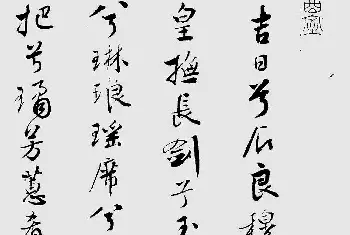 吉日兮辰良穆
皇撫長劍兮玉
兮琳琅瑶席兮
把兮璚芳蕙肴